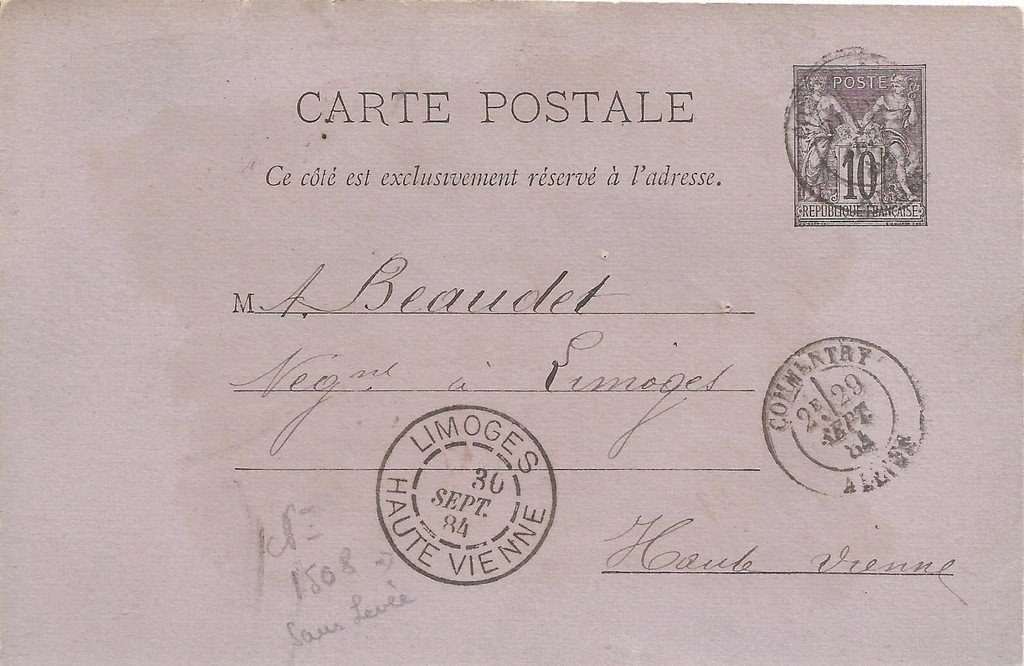 CARTE POSTALE
Ce côté est exclusivement réservé à l'adresse.
POSTE
10
RÉPUBLIQUE FRANÇAISE
M A. Beaudet
Négnt à Limoges
COMMENTRY
2E 29
SEPT.
84
ALLIER
LIMOGES
30
SEPT.
84
HAUTE VIENNE
Haute Vienne
1508
Sans Levée